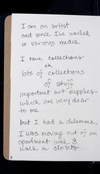 I am an artist
and since I've worked
in various media
I have collections
lots of collections
of stuff
important art supplies
which are very dear
to me
But I had a dilemma,
I was moving out of an
apartment with 3
walk in closets